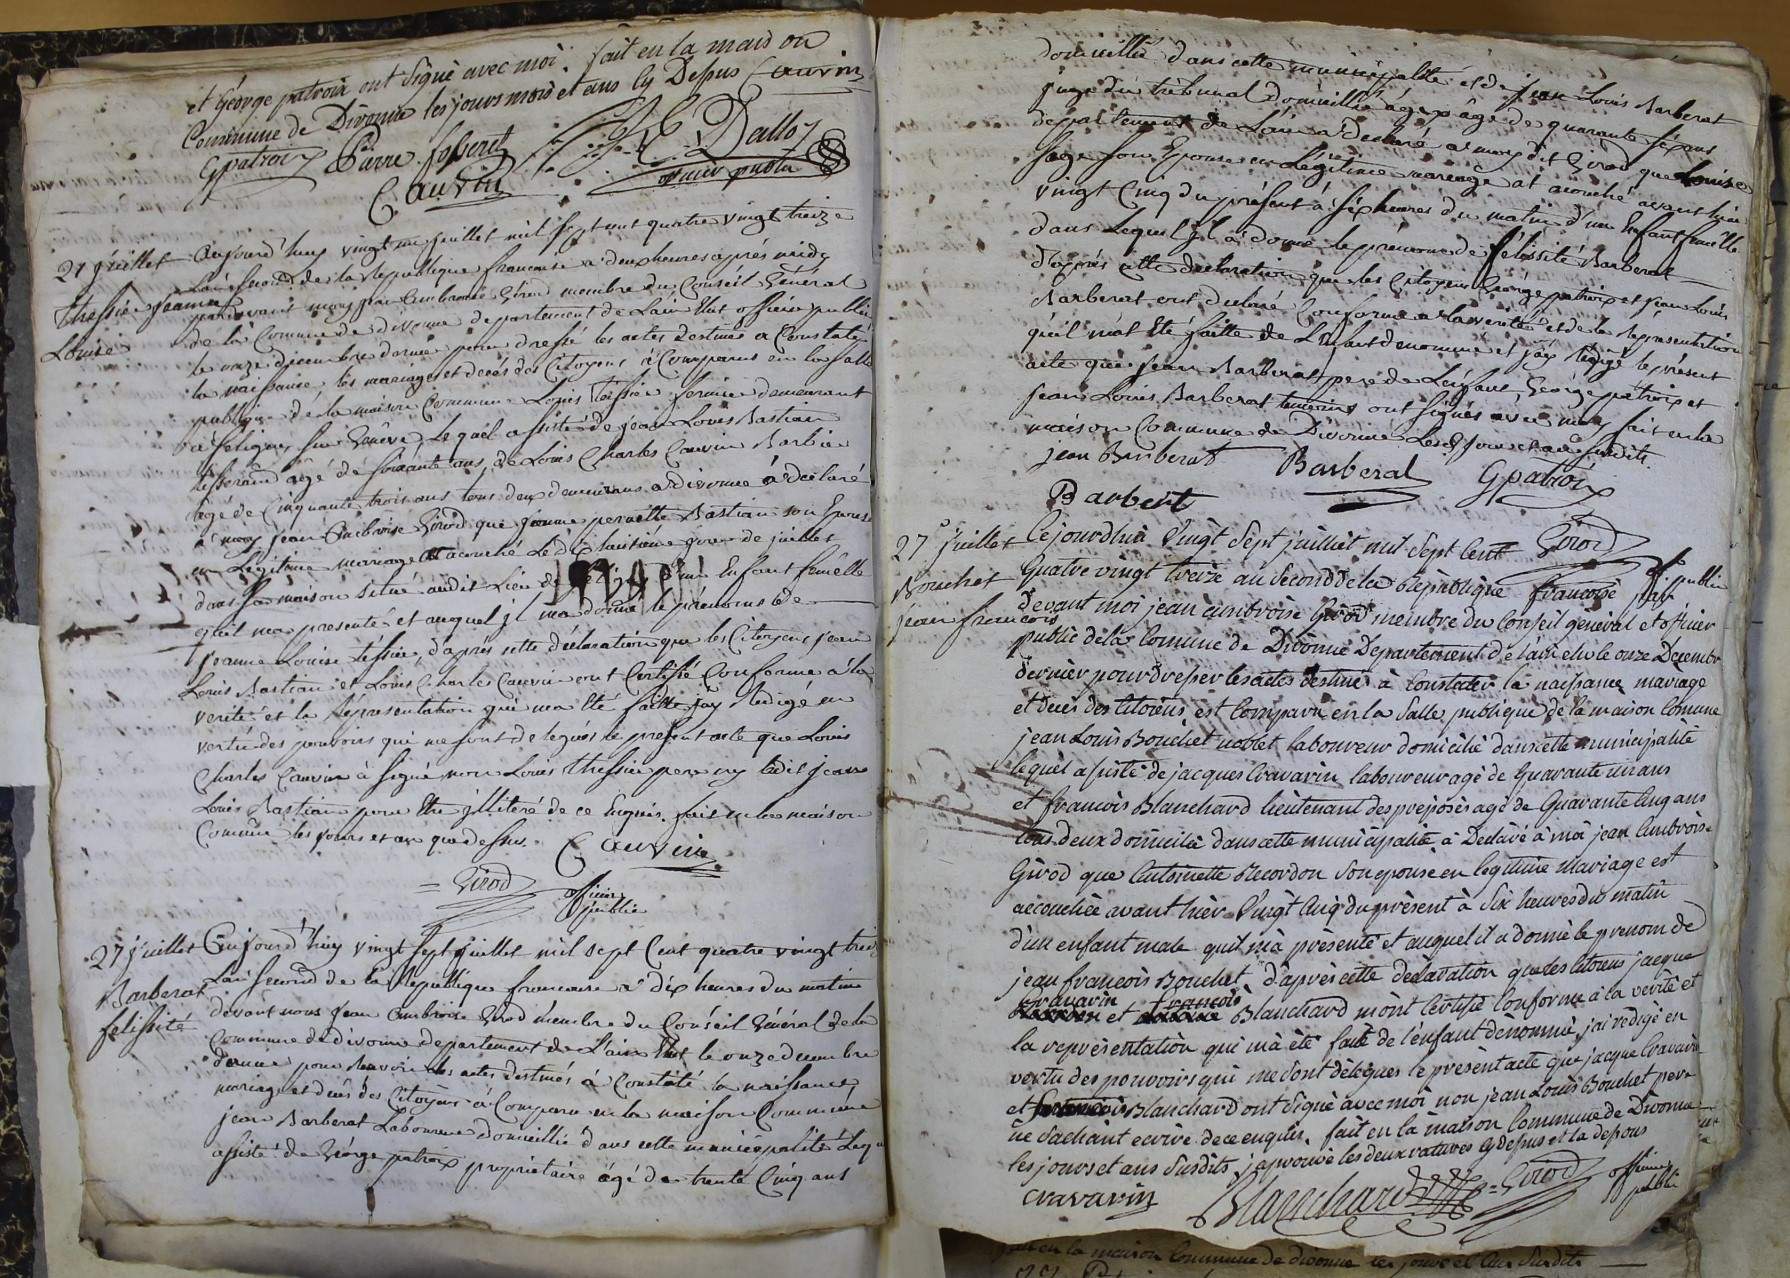 et George patroix ont signé avec moi. fait en la maison
Commune de Divonne les jours mois et ans cy Dessus Cauvin
Gpatroix Pierre Dalloz
officier public
Cauvin
21 juillet
thessier jeanne
Louise
Aujourd'huy vingt un juillet mil sept cent quatre vingt treize
L'an second de la Republique francaise a deux heures après midy
pardevant moy jean Ambroise Girod membre du Conseil Général
de la Commune de divonne departement de L'ain Elut officier public
le onze decembre dernier pour dressé les actes destinés a Constaté
la naissance, les mariages et decés des Citoyens à Comparus en la salle
publique de la maison Commune Louis tessier fermier demeurant
a Seligny sur Genève, Lequel assisté de jean Louis Bastian
tisserand agé de soixante ans, de Louis Charles Cauvin Barbier
agé de Cinquante trois ans tous deux demeurans a divonne à declaré
a moy jean Ambroise Girod que jeanne pernette Bastian son Epouse
en Légitime mariage at acouché Le dixhuitième jour de juillet
dans sa maison située audit Lieu de d'un Enfant femelle
qu'il ma presenté et auquel jl ma donné le prénoms de
jeanne Louise tessier, d'après cette déclaration que les Citoyens jean
Louis Bastian et Louis Charles Cauvin ont Certifié Conforme à la
verité et la réprésentation qui ma Eté faitte jay Redigé en
vertu des pouvoirs qui me sont delegués le present acte que Louis
Charles Cauvin à signé non Louis thessier pere ny ledit jean
Louis Bastian pour Etre jlliteré de ce Enquis. fait en la maison
Commune les jours et an que dessus. Cauvin
Girod officier
public
27 juillet
Barberat
felissité
Aujourd'huy vingt sept juillet mil sept Cent quatre vingt treize
L'an second de la Republique francaise a dix heures du matin
devant nous jean Ambroise Girod membre du Conseil Général de la
Commune de divonne departement de L'ain Elut le onze decembre
dernier pour recevoir les actes destinés à Constaté la naissance,
mariages et décés des Citoyens à Comparu en la maison Commune
jean Barberat Laboureur domicillié dans cette municipalité Lequel
assisté de Géorge patroix propriétaire agé de trente Cinq ans
domicillié dans cette municipalité et de jean Louis Barberat
juge du tribunal domicillié a gex âgé de quarante six ans
departement de L'ain a Declaré a moy dit Girod que Louise
son Epouse en Légitime mariage at acouché avant hier
vingt Cinq du présent à six heures du matin d'un Enfant femelle
dans Lequel jl a donné le prénom de félissité Barberat
d'après cette declaration que les Citoyens George patroix et jean Louis
Barberat ont declaré Conforme a la verité et de la réprésentation
qu'il m'at Eté faitte de L'enfant denommé et jay redigé le présent
acte que jean Barberat pere de Lenfant, George patroix et
jean Louis Barberat temoins ont signés avec moy fait en la
maison Commune de Divonne Les jour et an susdits.
jean Barberat Barberat Gpatroix
Barbert
Girod officier public
27 juillet
Bouchet
jean francois
Cejourdhui Vingt Sept juillet mil Sept Cent
Quatre vingt treize an Second de la République francoise par
devant moi jean ambroise Girod membre du Conseil general et oficier
public de la Comune de Divonne Departement de l'ain elu le onze Decembre
dernier pour dresser les actes destiné à constater la naissance mariage
et deces des Citoiens, est Comparu en la Salle publique de la maison Comune
jean Louis Bouchet noblet laboureur domicilié dans cette municipalité
lequel assisté de jacques Cravarin laboureur agé de Quarante un ans
et francois Blanchard lieutenant des preposès agé de Quarante Cinq ans
tous deux domicilié dans cette municipalité à Declaré à moi jean Ambroise
Girod que Antoinette Recordon Son epouse en legitime Mariage est
accouchée avant hier Vingt Cinq du present à Six heures du matin
d'un enfant male quil m'a présenté et auquel il a donné le prenom de
jean francois Bouchet d'apres cette declaration que les Citoiens jacque
Cravarin et francois Blanchard m'ont Certifié Conforme à la verité et
la representation qui m'a été faite de l'enfant denommé, j'ai redigé en
vertu des pouvoirs qui me Sont délegues le présent acte que jacque Cravarin
et francois Blanchard ont signé avec moi non jean Louis Bouchet pere
ne Sachant ecrire de ce enquis. fait en la maison Commune de Divonne
les jours et ans Susdits j'aprouve les deux ratures cy dessus et la dessous
Cravarin Blanchard Girod officier
public
en la maison Commune de divonne les jours et an Susdits